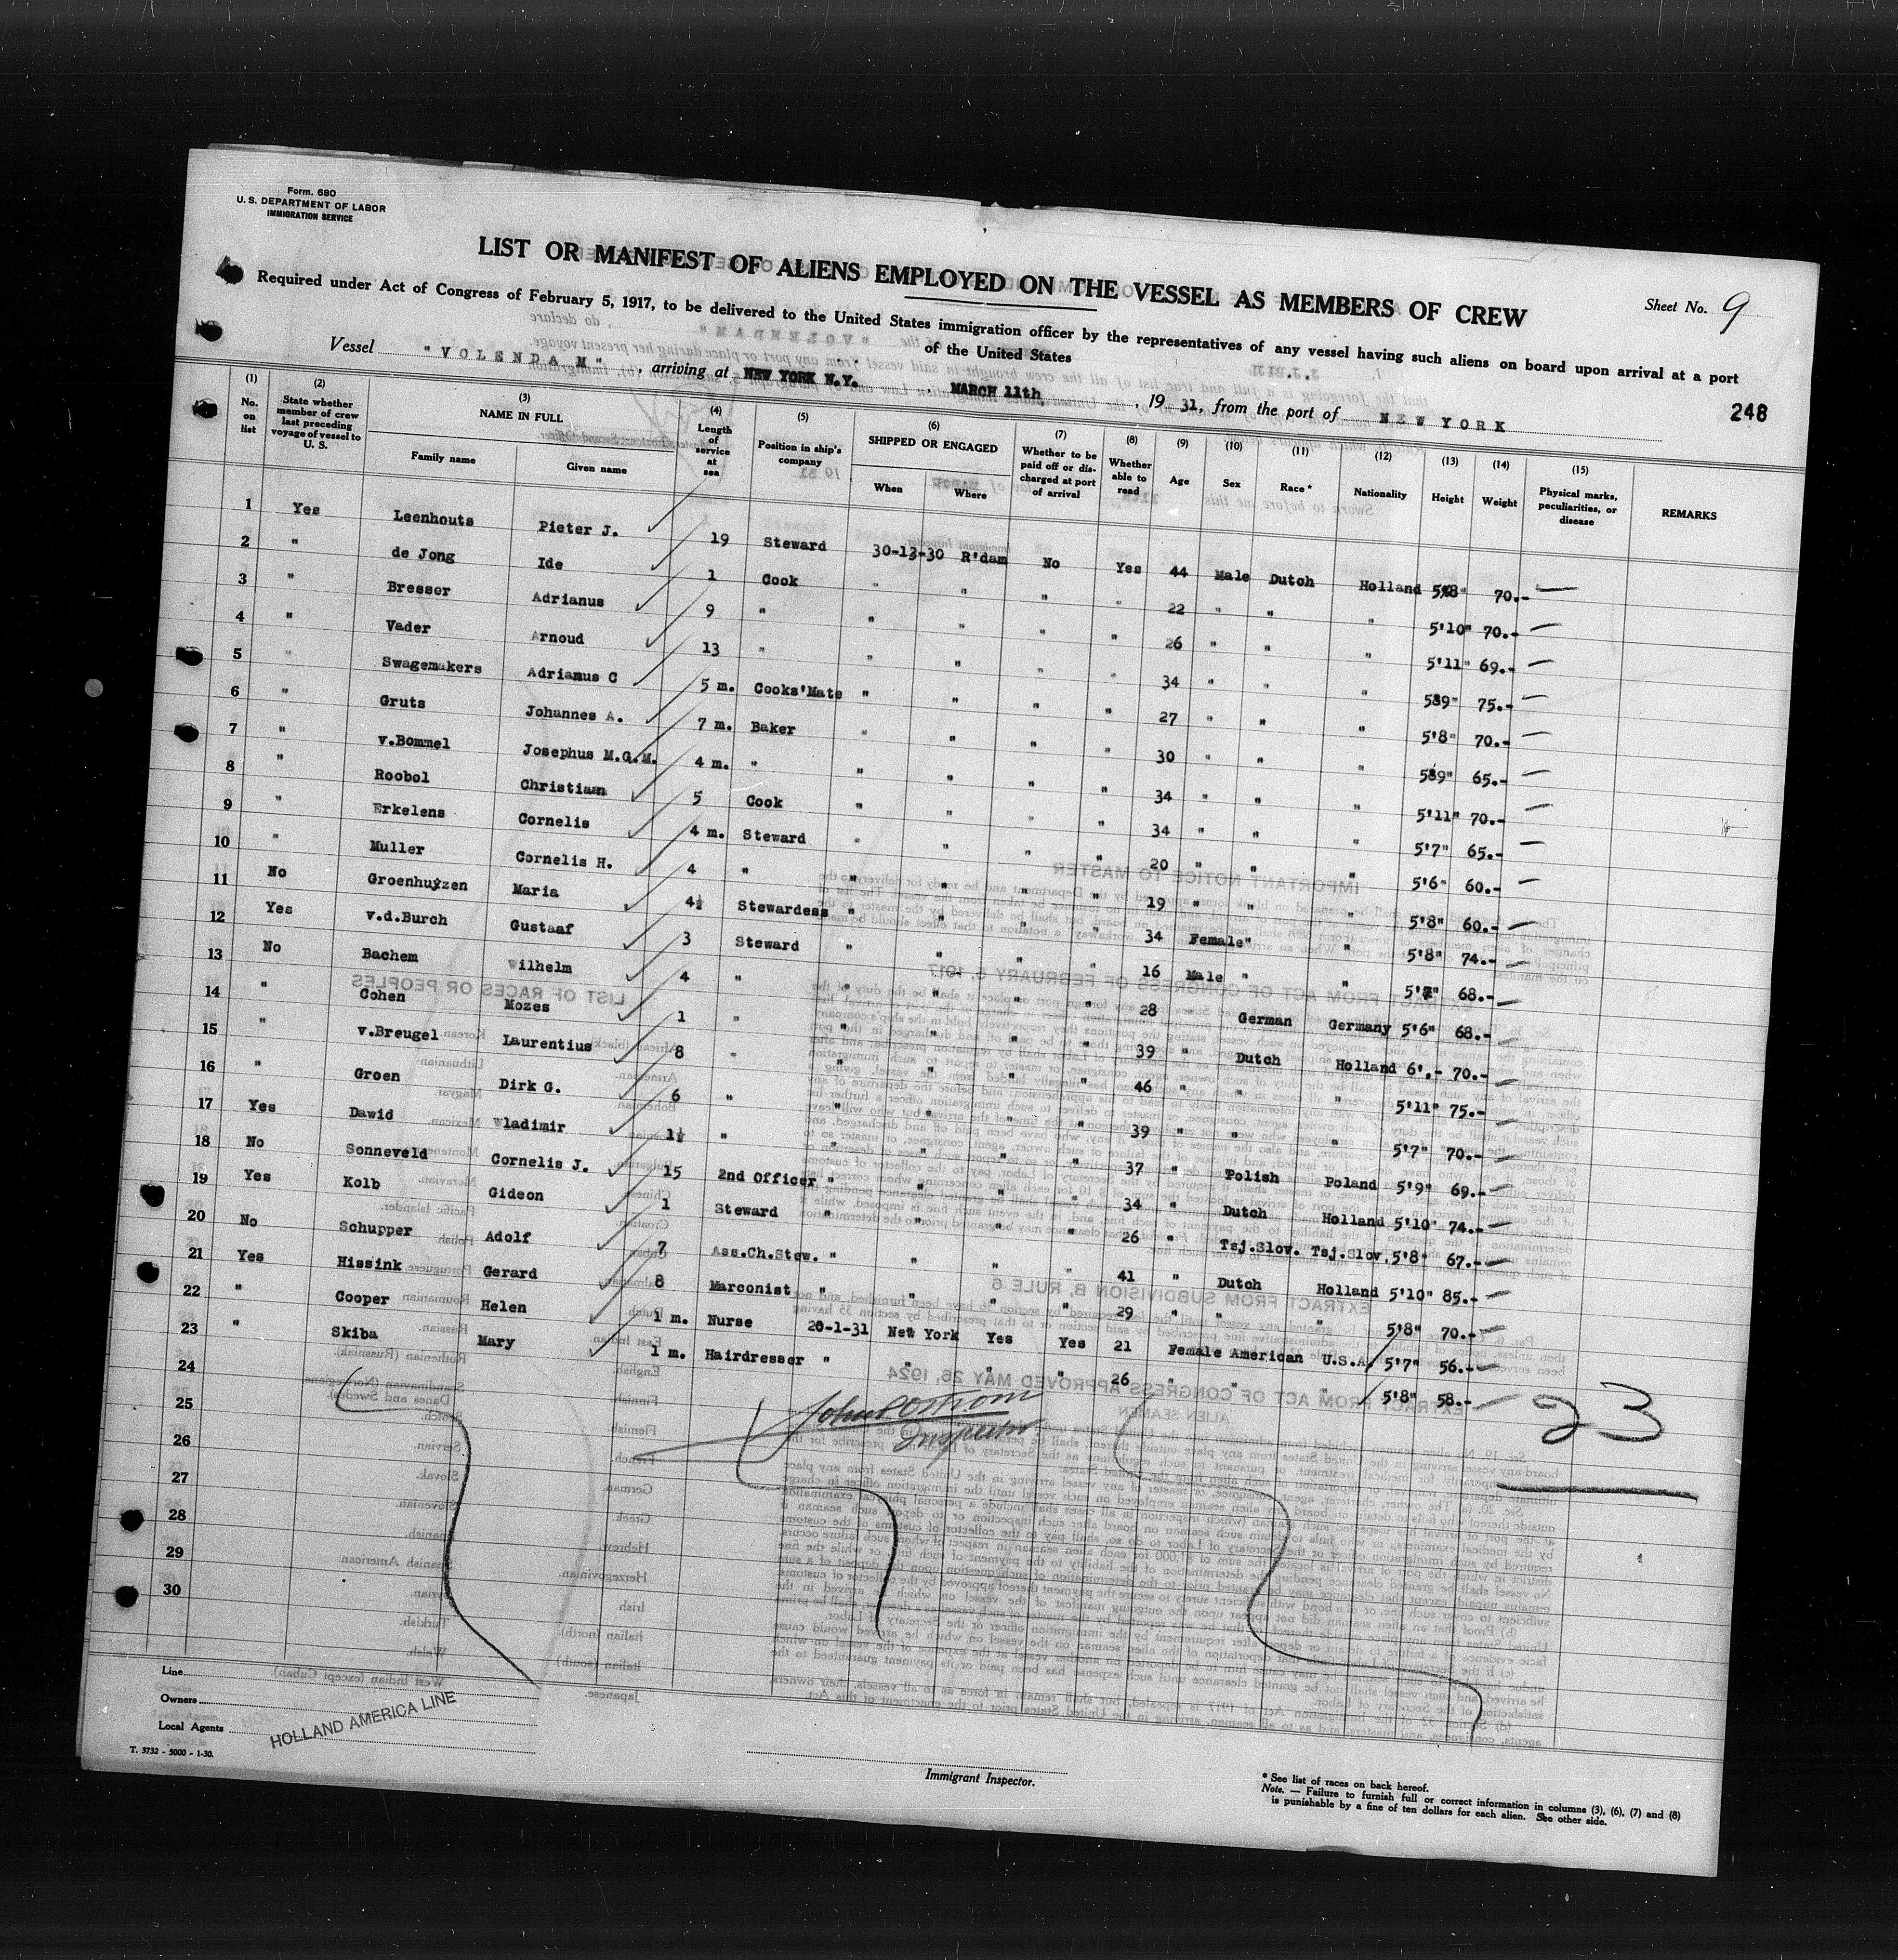 Form. 680
U. S. DEPARTMENT OF LABOR
IMMIGRATION SERVICE
LIST OR MANIFEST OF ALIENS EMPLOYED ON THE VESSEL AS MEMBERS OF CREW
Sheet No. 9
Required under Act of Congress of February 5, 1917, to be delivered to the United States immigration officer by the representatives of any vessel having such aliens on board upon arrival at a port
of the United States
Vessel "VOLENDAM", arriving at NEW YORK N.Y. MARCH 11th, 1931, from the port of NEW YORK
248
(1) No. on list (2) State whether member of crew last preceding voyage of vessel to U. S. (3) NAME IN FULL Family name Given name (4) Length of service at sea (5) Position in ship's company (6) SHIPPED OR ENGAGED When Where (7) Whether to be paid off or discharged at port of arrival (8) Whether able to read (9) Age (10) Sex (11) Race * (12) Nationality (13) Height (14) Weight (15) Physical marks, peculiarities, or disease REMARKS
1 Yes Leenhouts Pieter J. 19 Steward 30-12-30 R'dam No Yes 44 Male Dutch Holland 5'8" 70.-
2 " de Jong Ide 1 Cook " " " " 22 " " " 5'10" 70.-
3 " Bresser Adrianus 9 " " " " " 26 " " " 5'11" 69.-
4 " Vader Arnoud 13 " " " " " 34 " " " 5'9" 75.-
5 " Swagemakers Adrianus C 5 m. Cooks'Mate " " " " 27 " " " 5'8" 70.-
6 " Gruts Johannes A. 7 m. Baker " " " " 30 " " " 5'9" 65.-
7 " v.Bommel Josephus M.G.M. 4 m. " " " " " 34 " " " 5'11" 70.-
8 " Roobol Christiaan 5 Cook " " " " 34 " " " 5'7" 65.-
9 " Erkelens Cornelis 4 m. Steward " " " " 20 " " " 5'6" 60.-
10 " Muller Cornelis H. 4 " " " " " 19 " " " 5'8" 60.-
11 No Groenhuyzen Maria 4½ Stewardess " " " " 34 Female " " 5'8" 74.-
12 Yes v.d.Burch Gustaaf 3 Steward " " " " 16 Male " " 5'7" 68.-
13 No Bachem Wilhelm 4 " " " " " 28 " German Germany 5'6" 68.-
14 " Cohen Mozes 1 " " " " " 39 " Dutch Holland 6'.- 70.-
15 " v.Breugel Laurentius 8 " " " " " 46 " " " 5'11" 75.-
16 " Groen Dirk G. 6 " " " " " 39 " " " 5'7" 70.-
17 Yes Dawid Wladimir 1½ " " " " " 37 " Polish Poland 5'9" 69.-
18 No Sonneveld Cornelis J. 15 2nd Officer " " " " 34 " Dutch Holland 5'10" 74.-
19 Yes Kolb Gideon 1 Steward " " " " 26 " Tsj.Slov. Tsj.Slov. 5'8" 67.-
20 No Schupper Adolf 7 Ass.Ch.Stew. " " " " 41 " Dutch Holland 5'10" 85.-
21 Yes Hissink Gerard 8 Marconist " " " " 29 " " " 5'8" 70.-
22 " Cooper Helen 1 m. Nurse 20-1-31 New York Yes Yes 21 Female American U.S.A. 5'7" 56.-
23 " Skiba Mary 1 m. Hairdresser " " " " 26 " " " 5'8" 58.-
24
25
26
27
28
29
30
23
Inspector.
Line
Owners
Local Agents
HOLLAND AMERICA LINE
T. 3732 - 5000 - 1-30.
Immigrant Inspector.
* See list of races on back hereof.
Note. — Failure to furnish full or correct information in columns (3), (6), (7) and (8)
is punishable by a fine of ten dollars for each alien. See other side.